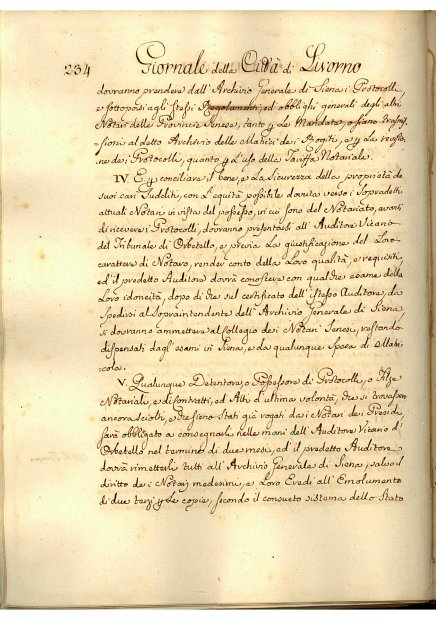 234 Giornale della Città di Livorno
dovranno prendere dall' Archivio Generale di Siena i Protocolli,
e sottoposti agli stessi Regolamenti, ed obblighi generali degli altri
Notari delle Provincie Senesi, tanto p le Mandate, o siano Trasmis,
=sioni al detto Archivio delle Matrici de i Rogiti, e p la revisio,
ne de i Protocolli, quanto p l'uso della Tariffa Notariale.
IV. E p conciliare il bene, e la sicurezza della proprietà de
suoi cari Sudditi, con l'equità possibile dovuta verso i sopradetti
attuali Notari in vista del possesso, in cui sono del Notariato, avanti
di ricevere i Protocolli, dovranno presentarsi all' Auditore Vicario
del Tribunale di Orbetello, e previa la giustificazione del Loro
carattere di Notaro, render conto della Loro qualità, e requisiti,
ed il predetto Auditore dovrà conoscere con qualche esame della
Loro idoneità, dopo di che sul certificato dell' istesso Auditore, da
spedirsi al Sopraintendente dell' Archivio Generale di Siena
si dovranno ammettere al Collegio de i Notari Senesi, restando
dispensati dagl' esami in Siena, e da qualunque spesa di Matri,
cola.
V. Qualunque Detentore, o Possessore di Protocolli, o Filze
Notariali, e di contratti, ed Atti d'ultima volontà, che si trovassero
ancora sciolti, e che siano stati già rogati dai Notari de i Presidi,
sarà obbligato a consegnarli nelle mani dell' Auditore Vicario d'
Orbetello nel termine di due mesi, ed il predetto Auditore
dovrà rimetterli tutti all' Archivio Generale di Siena, salvo il
diritto de i Notari medesimi, e Loro Eredi all' Emolumento
di due terzi p le copie, secondo il consueto sistema dello Stato